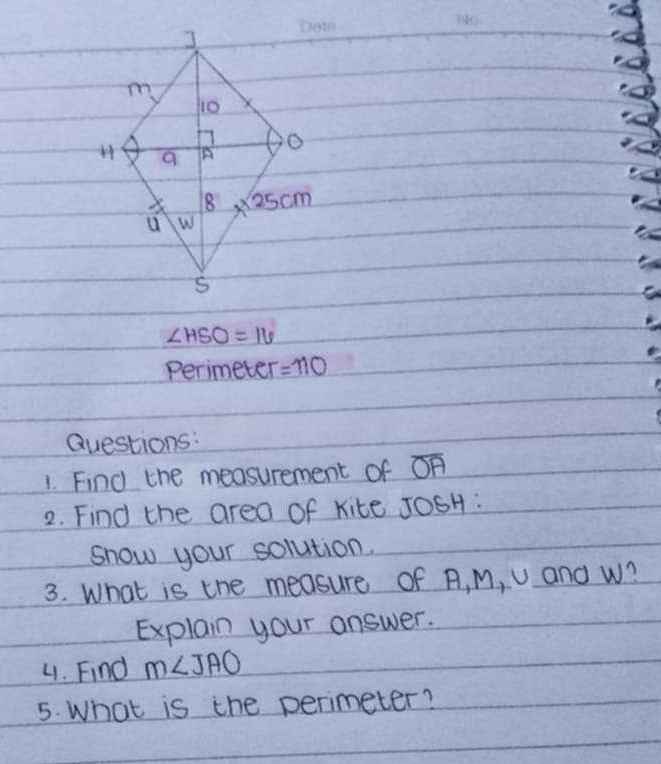 Date No
J
m
10
H 9 A O
8 25cm
u w
S
∠HSO = 16
Perimeter=110
Questions:
1. Find the measurement of OA
2. Find the area of kite JOSH:
Show your solution.
3. What is the measure of A,M,U and W?
Explain your answer.
4. Find m∠JAO
5. What is the perimeter?